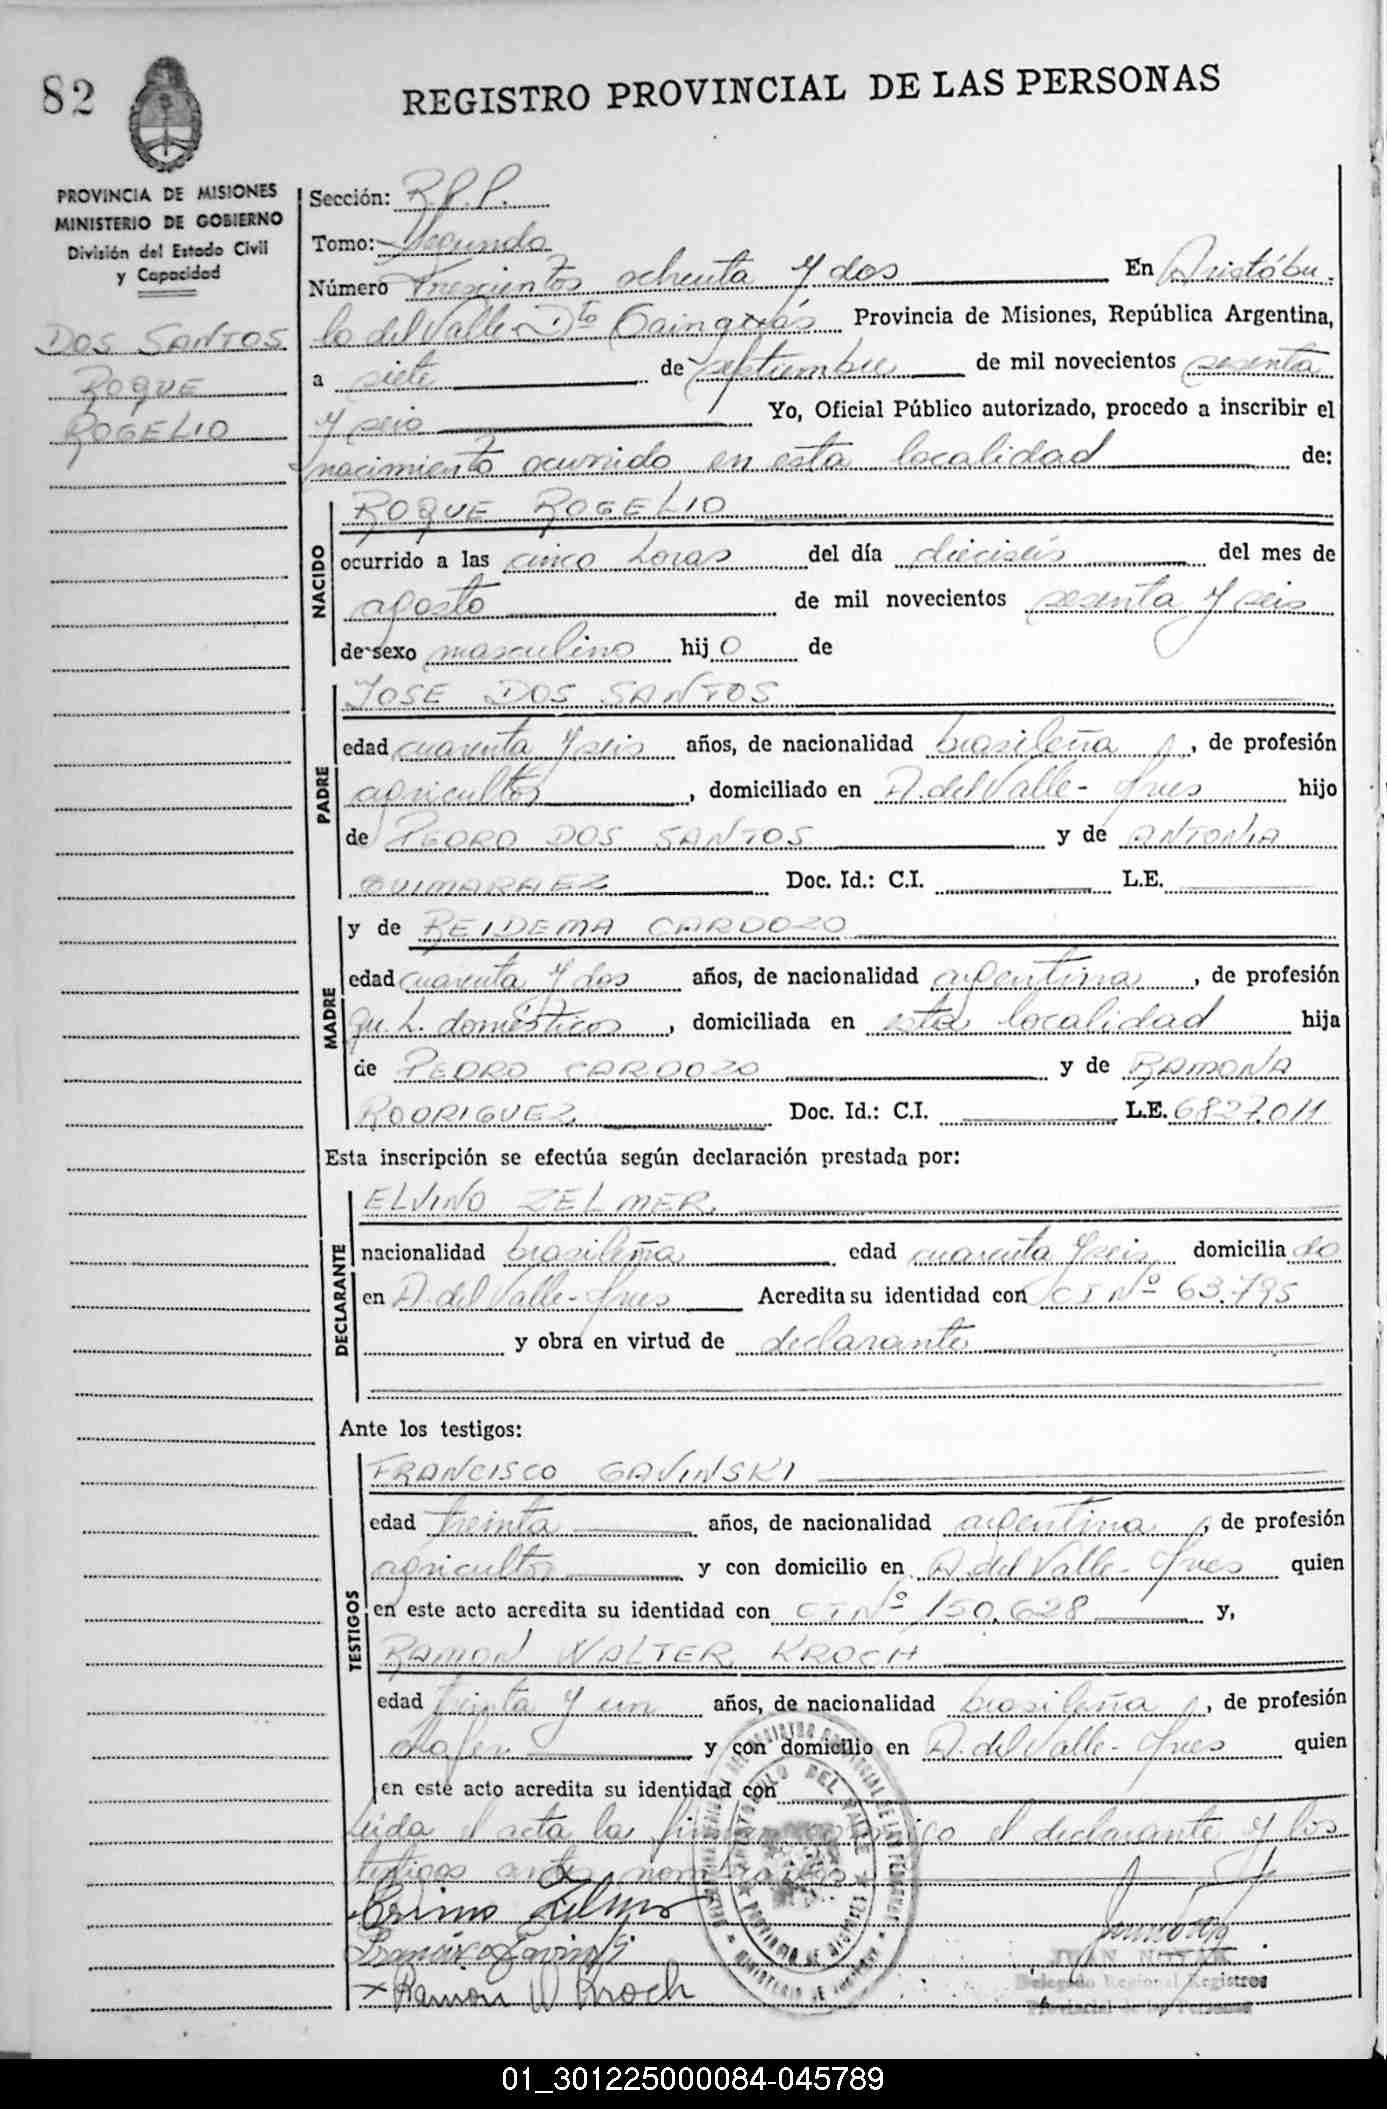 82
REGISTRO PROVINCIAL DE LAS PERSONAS
PROVINCIA DE MISIONES
MINISTERIO DE GOBIERNO
División del Estado Civil
y Capacidad
DOS SANTOS
ROQUE
ROGELIO
Sección: R.P.P.
Tomo: Segundo
Número Trescientos ochenta y dos En Aristóbu-
lo del Valle - Dto Cainguás Provincia de Misiones, República Argentina,
a siete de septiembre de mil novecientos sesenta
y seis Yo, Oficial Público autorizado, procedo a inscribir el
nacimiento ocurrido en esta localidad de:
NACIDO
ROQUE ROGELIO
ocurrido a las cinco horas del día dieciseis del mes de
agosto de mil novecientos sesenta y seis
de sexo masculino hijo de
PADRE
JOSE DOS SANTOS
edad cuarenta y seis años, de nacionalidad brasileña, de profesión
agricultor, domiciliado en A. del Valle - hijo
de PEDRO DOS SANTOS y de ANTONIA
GUIMARAEZ Doc. Id.: C.I. L.E.
MADRE
y de REIDEMA CARDOZO
edad cuarenta y dos años, de nacionalidad argentina, de profesión
qu. h. domésticos, domiciliada en esta localidad hija
de PEDRO CARDOZO y de RAMONA
RODRIGUEZ Doc. Id.: C.I. L.E. 6827.011
Esta inscripción se efectúa según declaración prestada por:
DECLARANTE
ELVINO ZELMER
nacionalidad brasileña edad cuarenta y seis domiciliado
en A. del Valle - Acredita su identidad con CI Nº 63.795
y obra en virtud de declarante
Ante los testigos:
TESTIGOS
FRANCISCO GAVINSKI
edad treinta años, de nacionalidad argentina, de profesión
agricultor y con domicilio en A. del Valle - quien
en este acto acredita su identidad con CI Nº 150.628 y,
RAMON WALTER KROCH
edad treinta y un años, de nacionalidad brasileña, de profesión
chofer y con domicilio en A. del Valle - quien
en este acto acredita su identidad con
Leída el acta la firman conmigo el declarante y los
testigos antes nombrados
Francisco Gavinski
Ramón W Kroch
JUAN
Delegado Regional Registros
Provincial de las Personas
01_301225000084-045789